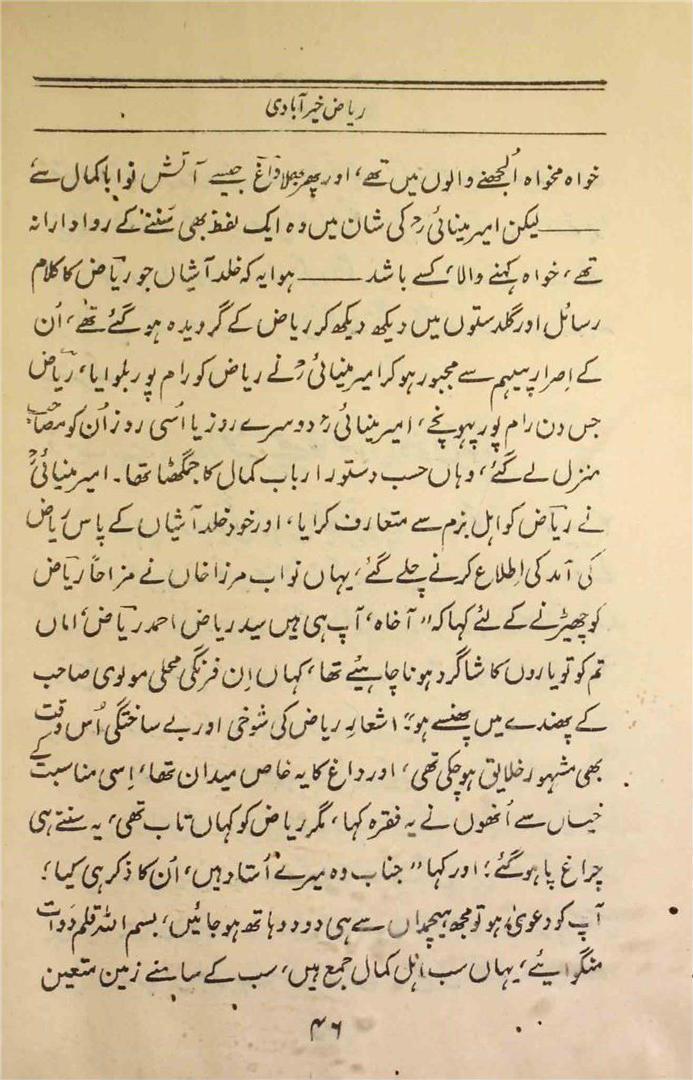 ریاض خیرآبادی
خواہ مخواہ اُلجھنے والوں میں تھے، اور پھر بھلا داغؔ جیسے آتش نوا باکمال سے
——لیکن امیر مینائیؒ کی شان میں وہ ایک لفظ بھی سننے کے روادار نہ
تھے، خواہ کہنے والا، کسے باشد —— ہوا یہ کہ خلد آشیاں جو ریاضؔ کا کلام
رسائل اور گلدستوں میں دیکھ دیکھ کر ریاض کے گرویدہ ہو گئے تھے، اُن
کے اِصرار پیہم سے مجبور ہو کر امیر مینائیؒ نے ریاض کو رام پور بلوایا، ریاضؔ
جس دن رام پور پہونچے، امیر مینائیؒ دوسرے روز یا اُسی روز اُن کو مصاحب
منزل لے گئے، وہاں حسب دستور ارباب کمال کا جمگھٹا تھا۔ امیر مینائیؒ
نے ریاضؔ کو اہل بزم سے متعارف کرایا، اور خود خلد آشیاں کے پاس ریاضؔ
کی آمد کی اِطلاع کرنے چلے گئے، یہاں نواب مرزا خاں نے مزاحاً ریاضؔ
کو چھیڑنے کے لئے کہا کہ "آخاہ، آپ ہی ہیں سید ریاض احمد ریاضؔ، اماں
تم کو تو یاروں کا شاگرد ہونا چاہیئے تھا، کہاں اِن فرنگی محلی مولوی صاحب
کے پھندے میں پھنسے ہو"؛ اشعارِ ریاض کی شوخی اور بے ساختگی اُس وقت
بھی مشہور خلایق ہو چکی تھی، اور داغ کا یہ خاص میدان تھا، اِسی مناسبت کے
خیال سے اُنھوں نے یہ فقرہ کہا، مگر ریاض کو کہاں تاب تھی، یہ سنتے ہی
چراغ پا ہو گئے؛ اور کہا "جناب وہ میرے اُستاد ہیں، اُن کا ذکر ہی کیا؛
آپ کو دعویٰ ہو تو مجھ ہیچمداں سے ہی دو دو ہاتھ ہو جائیں، بسم اللہ قلم دَوات
منگوایئے، یہاں سب اہل کمال جمع ہیں، سب کے سامنے زمین متعین
۴۶